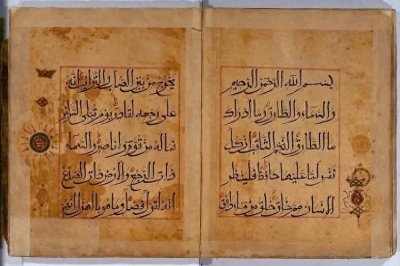 بسم الله الرحمن الرحيم
والسماء والطارق وما ادراك
ما الطارق النجم الثاقب ان كل
نفس لما عليها حافظ فلينظر
الانسان مم خلق خلق من ماء دافق
يخرج من بين الصلب والترائب انه
على رجعه لقادر يوم تبلى السرائر
فما له من قوة ولا ناصر والسماء
ذات الرجع والارض ذات الصدع
انه لقول فصل وما هو بالهزل انهم